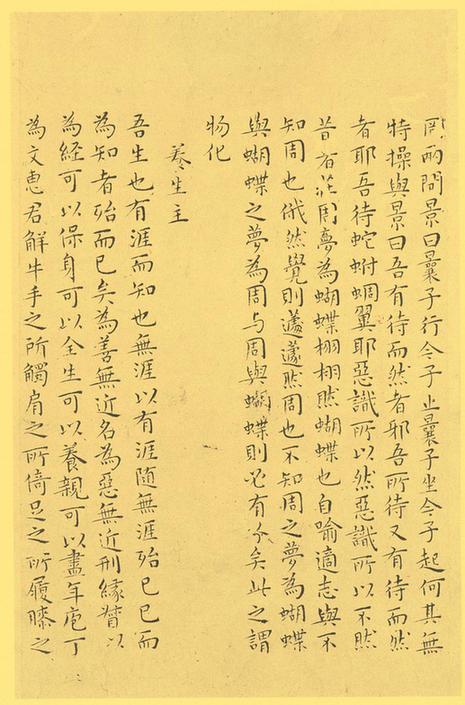 罔兩問景曰曩子行今子止曩子坐今子起何其無
特操與景曰吾有待而然者邪吾所待又有待而然
者耶吾待蛇蚹蜩翼耶惡識所以然惡識所以不然
昔者莊周夢為蝴蝶栩栩然蝴蝶也自喻適志與不
知周也俄然覺則蘧蘧然周也不知周之夢為蝴蝶
與蝴蝶之夢為周与周與蝴蝶則必有分矣此之謂
物化
養生主
吾生也有涯而知也無涯以有涯随無涯殆已已而
為知者殆而已矣為善無近名為惡無近刑緣督以
為経可以保身可以全生可以養親可以盡年庖丁
為文恵君觧牛手之所觸肩之所倚足之所履膝之